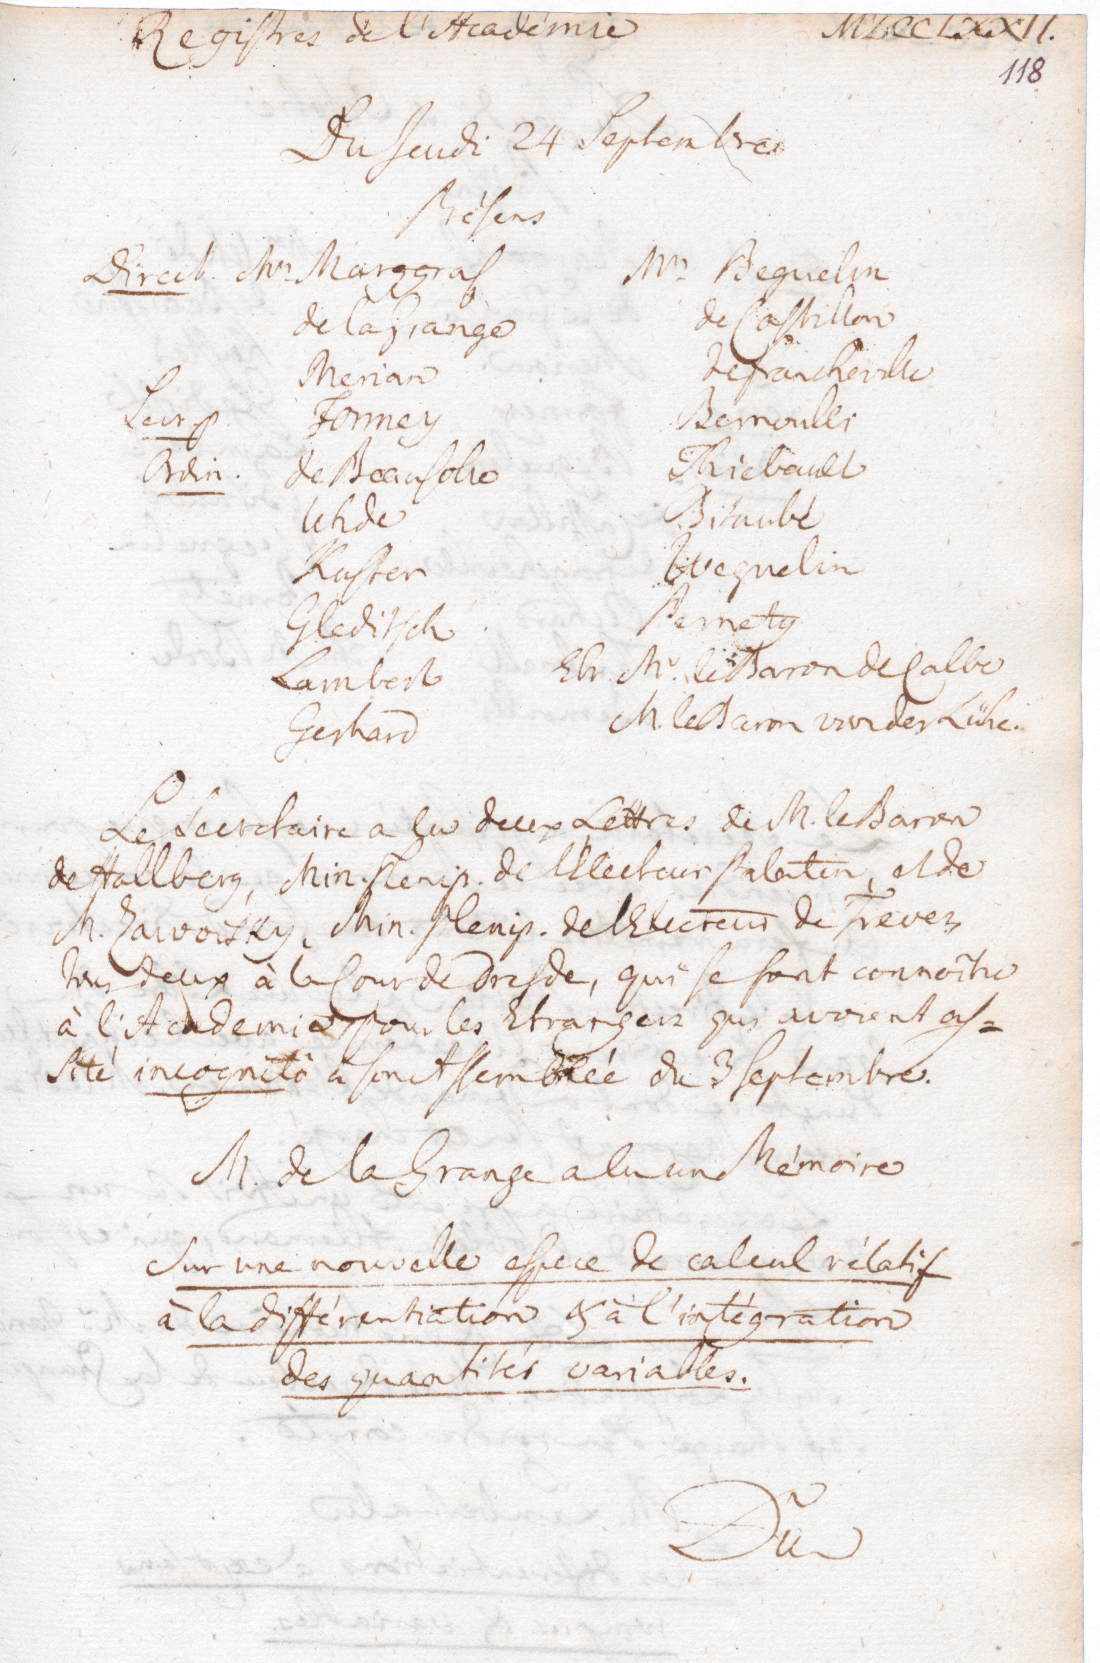 Registres de l'Académie MDCCLXXII.
118
Du Jeudi 24 Septembre
Présens
Direct. Mrs. Marggraf Mrs. Beguelin
de la Grange de Castillon
Merian de Francheville
Secr. p. Formey Bernoulli
Ordin. de Beausobre Thiebault
Uhde Bitaubé
Kuster Weguelin
Gleditsch Pernety
Lambert Etr. Mr. le Baron de Calbe
Gerhard M. le Baron von der Lühe.
Le Secretaire a lu deux Lettres de M. le Baron
de Hallberg, Min. Plenip. de l'Electeur Palatin, et de
M. Zawoisky, Min. Plenip. de l'Electeur de Treves,
tous deux à la Cour de Dresde, qui se font connoître
à l'Academie pour les Etrangers qui avoient as=
sisté incognitò à son Assemblée du 3 Septembre.
M. de la Grange a lu un Mémoire
sur une nouvelle espece de calcul rélatif
à la différentiation & à l'intégration
des quantités variables.
Du